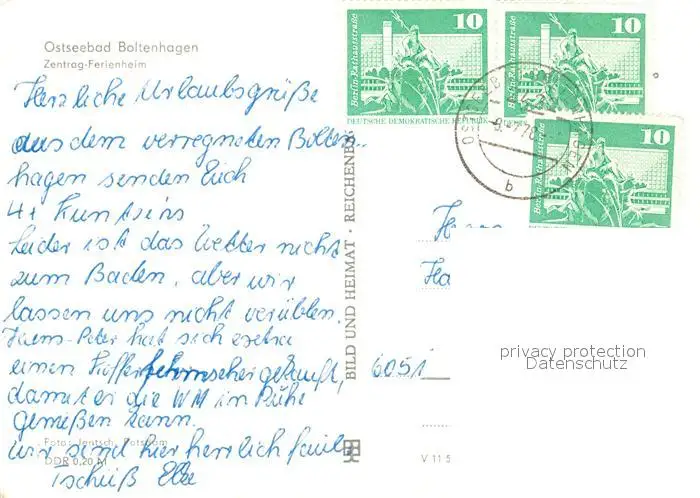 Ostseebad Boltenhagen
Zentrag-Ferienheim
Herzliche Urlaubsgrüße
aus dem verregneten Bolten-
hagen senden Euch
4x
Leider ist das Wetter nicht
zum Baden, aber wir
lassen uns nicht verüblen.
Hans-Peter hat sich extra
einen Kofferfernseher gekauft,
damit er die WM in Ruhe
genießen kann.
wir sind hier herrlich faul
Tschüß Elke
Foto: Jentsch, Potsdam
DDR 0,20 M
BILD UND HEIMAT · REICHENBA
10
Berlin-Rathausstraße
DEUTSCHE DEMOKRATISCHE REPUBLIK
10
Berlin-Rathausstraße
10
Berlin-Rathausstraße
b
Ha
6051
V 11 5
privacy protection
Datenschutz